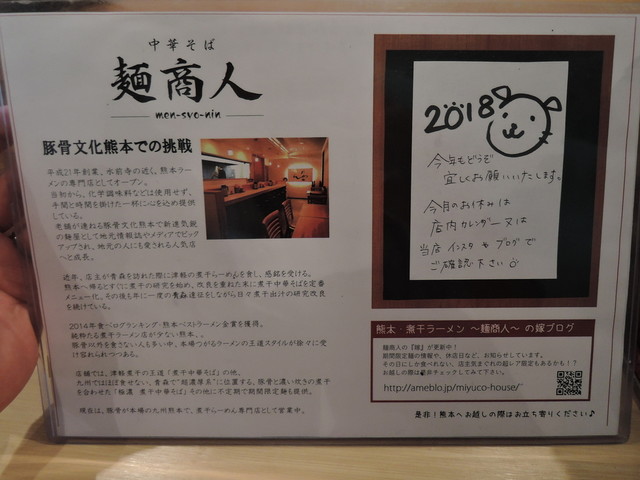 中華そば
麺商人
men-syo-nin
豚骨文化熊本での挑戦
平成21年創業、水前寺の近く、熊本ラー
メンの専門店としてオープン。
当初から、化学調味料などは使用せず、
手間と時間を掛けた一杯に心を込め提供
している。
老舗が連ねる豚骨文化熊本で新進気鋭
の麺屋として地元情報誌やメディアでピック
アップされ、地元の人にも愛される人気店
へと成長。
近年、店主が青森を訪れた際に津軽の煮干らーめんを食し、感銘を受ける。
熊本へ帰るとすぐに煮干の研究を始め、改良を重ねた末に煮干中華そばを定番
メニュー化。その後も年に一度の青森遠征をしながら日々煮干出汁の研究改良
を続けている。
2014年食べログランキング・熊本ベストラーメン金賞を獲得。
純粋たる煮干ラーメン店が少ない熊本、、
豚骨以外を食さない人も多い中、本場づつがるラーメンの王道スタイルが徐々に受
け容れられつつある。
店舗では、津軽煮干の王道「煮干中華そば」の他、
九州ではほぼ食せない、青森で"超濃厚系"に位置する、豚骨と濃い炊きの煮干
を合わせた「極濃 煮干中華そば」その他に不定期で期間限定麺も提供。
現在は、豚骨が本場の九州熊本で、煮干らーめん専門店として営業中。
2018
今年もどうぞ
宜しくお願いいたします。
今月のお休みは
店内カレンダー又は
当店インスタやブログで
ご確認下さい
熊本・煮干ラーメン ～麺商人～ の嫁ブログ
麺商人の『嫁』が更新中!
期間限定麺の情報や、休店日など、お知らせしています。
その日にしか食べれない、店主気まぐれの超レア限定もあるかも!?
お越しの際は是非チェックしてみて下さい。
http://ameblo.jp/miyuco-house/
是非!熊本へお越しの際はお立ち寄りください♪